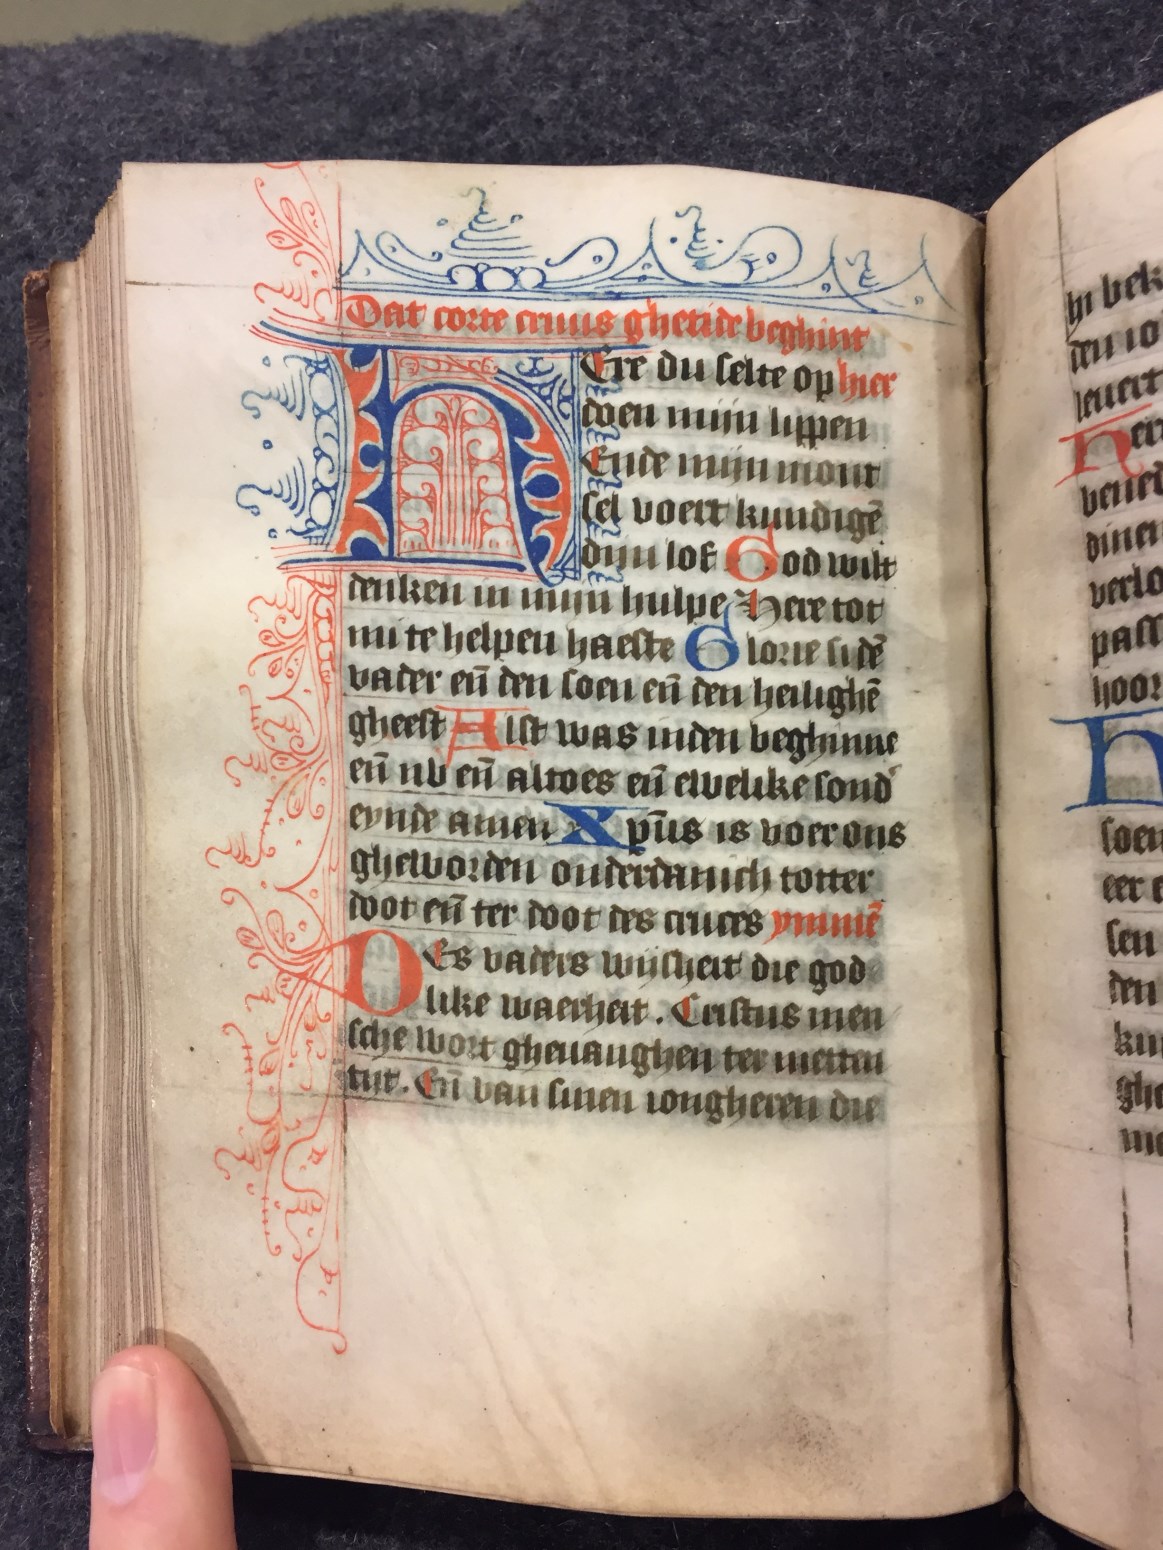 Dat corte cruus ghetide beghint
HEre du selte op hier
doen mijn lippen
Ende mijn mont
sel voert kundigē
dijn lof God wilt
denken in mijn hulpe Here tot
mi te helpen haeste Glorie si dē
vader eñ den soen eñ den heilighē
gheest Alst was inden beghinne
eñ nv eñ altoes eñ ewelike sond'
eynde amen Xpūs is voer ons
gheworden onderdanich totter
doot eñ ter doot des cruces ymmē
DEs vaders wijsheit die god
like waerheit. Cristus men
sche wort gheuanghen ter metten
tijt. Eñ van sinen iongheren die
hi bek
den io
leuert
her
bened
dinen
verlo
pass
hoor
H
soen
eer e
sen
den
kun
ghe